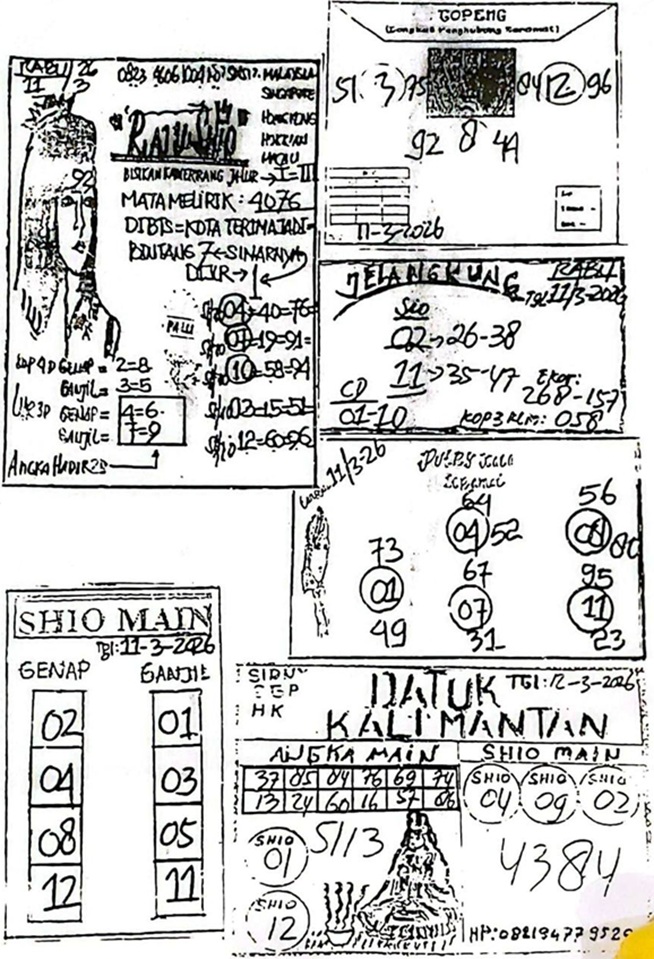 RABU 26
11 3
MALAYSIA
SINGAPORE
HONGKONG
MACAU
RATU SHIO
JALUR → I = III
MATA MELIRIK : 4076
DI BTS = KOTA TERIMA JADI =
BINTANG 7 ← SINARNYA
DLUR →
92
PALU
Shio 04 = 40 = 76 =
Shio 01 = 19 = 91 =
Shio 10 = 58 = 94
Shio 03 = 15 = 51 =
Shio 12 = 60 = 96
KOP 4D GENAP = 2=8
GANJIL = 3=5
3D GENAP = 4=6
GANJIL = 7=9
ANGKA HADIR 28
TOPENG
51 3 75 84 12 96
92 8 4A
11-3-2026
JELANGKUNG RABU
TGL 11/3-2026
Sio
02 → 26-38
11 → 35-47
Ekor:
268-157
CD
01-10
KOP 3 KLM: 058
11/3-26
64
04 52
56
08 80
73
01
49
67
07
31
95
11
23
SHIO MAIN
Tgl: 11-3-2026
GENAP GANJIL
02 01
04 03
08 05
12 11
SGP
HK
DATUK TGl: 12-3-2026
KALIMANTAN
ANGKA MAIN SHIO MAIN
37 05 04 76 69 74
13 24 60 16 57 06
SHIO 04 SHIO 09 SHIO 02
SHIO 01
5113
4384
SHIO 12
HP: 082194779529